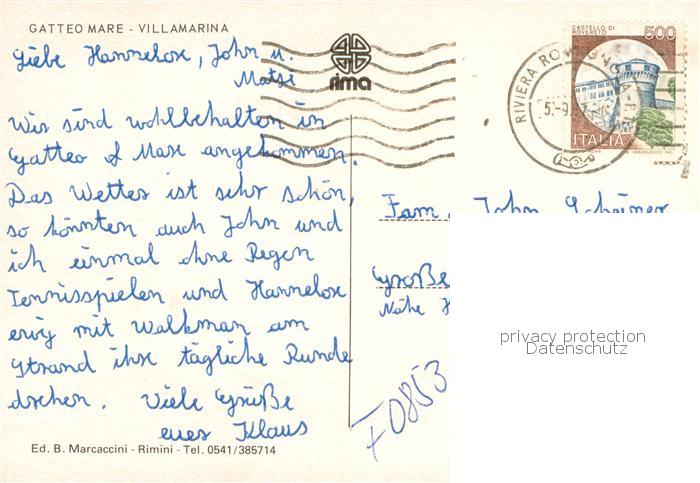 GATTEO MARE - VILLAMARINA
Liebe Hannelore, John u.
Matse
rima
Wir sind wohlbehalten in
Gatteo d Mare angekommen.
Das Wetter ist sehr schön,
so könnten auch John und
ich einmal ohne Regen
Tennisspielen und Hannelore
ewig mit Walkman am
Strand ihre tägliche Runde
drehen. Viele Grüße
euer Klaus
Ed. B. Marcaccini - Rimini - Tel. 0541/385714
CASTELLO DI
ROVERETO
500
ITALIA
RIVIERA
5.-9.
Fam. John
Große
Nähe H
F0853
privacy protection
Datenschutz